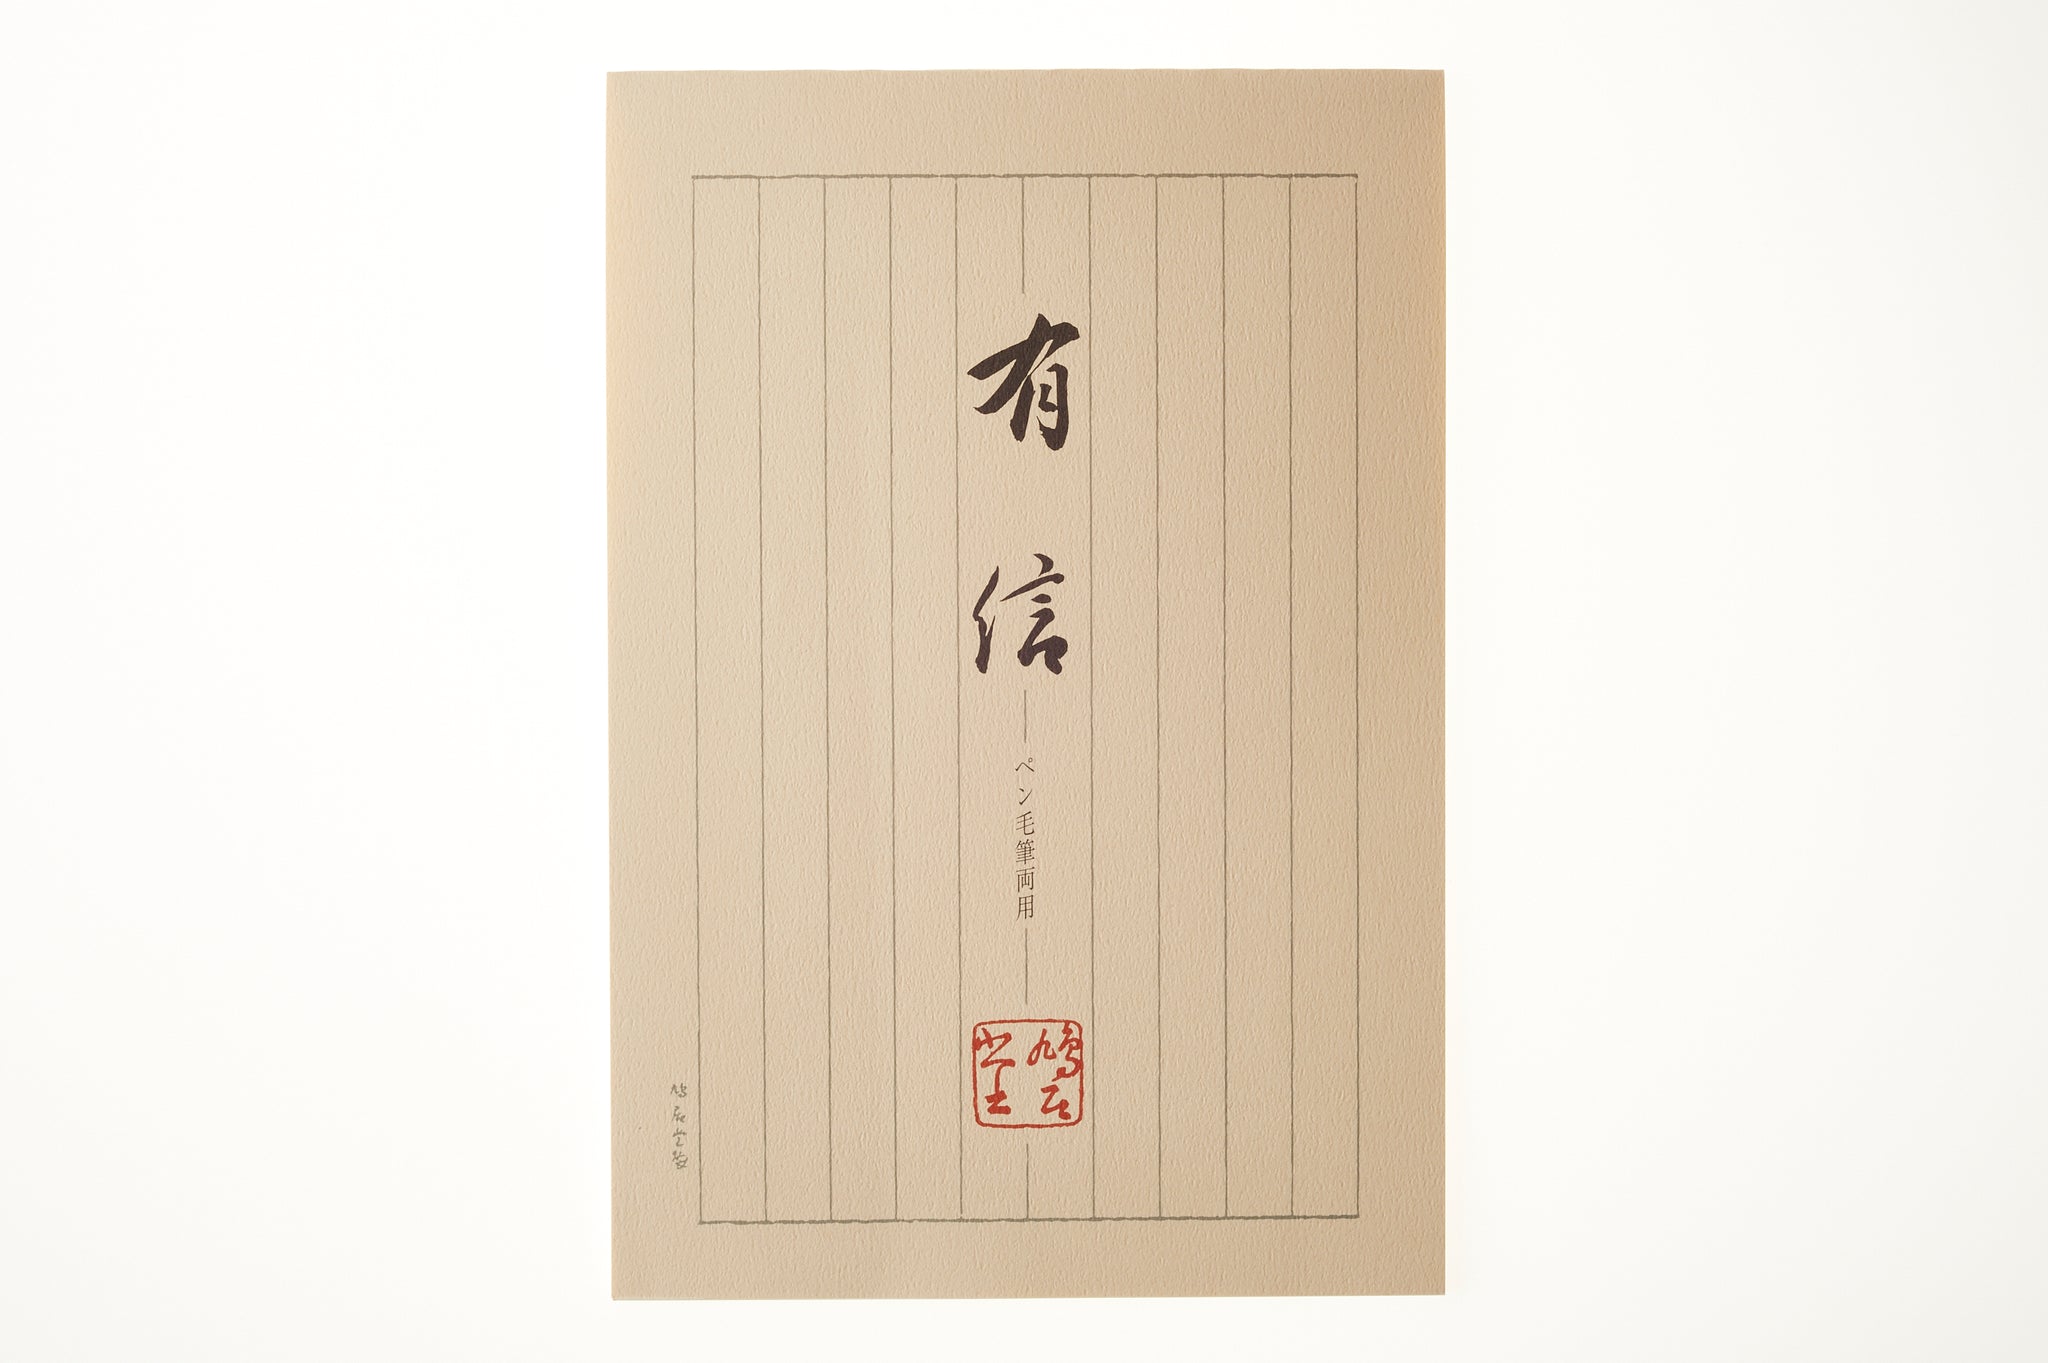 有信
ペン毛筆両用
鳩居堂
鳩居堂製